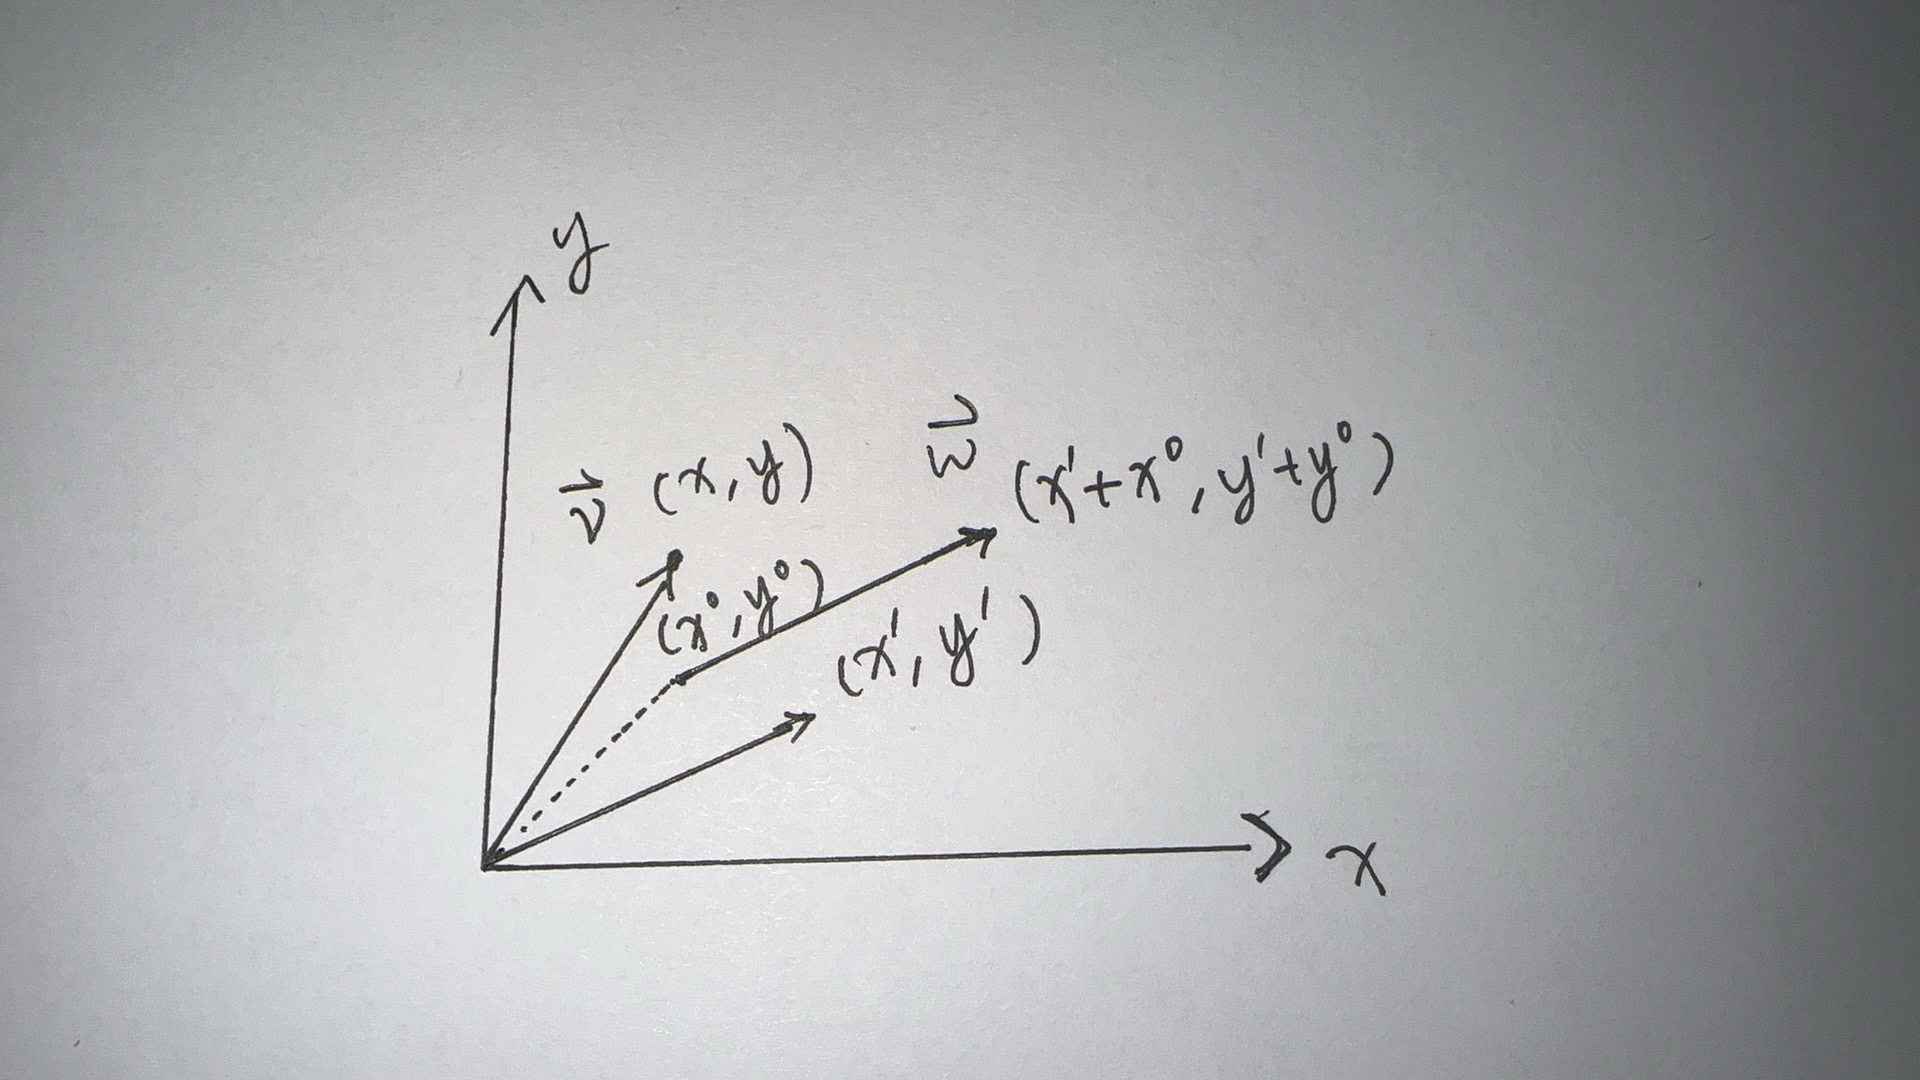 y
v⃗ (x, y)
w⃗ (x'+x⁰, y'+y⁰)
(x⁰, y⁰)
(x', y')
x